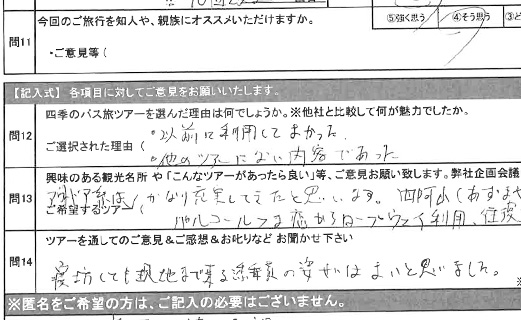 問11 今回のご旅行を知人や、親族にオススメいただけますか。
⑤強く思う ④そう思う ③ど
・ご意見等(
【記入式】 各項目に対してご意見をお願いいたします。
四季のバス旅ツアーを選んだ理由は何でしょうか。※他社と比較して何が魅力でしたか。
問12
・以前に利用してよかった
ご選択された理由(
・他のツアーにない内容であった
興味のある観光名所 や「こんなツアーがあったら良い」等、ご意見お願い致します。弊社企画会議
問13
かなり充実してきたと思います。
ご希望するツアー(
ロープウェイ利用、往復
ツアーを通してのご意見&ご感想&お叱りなど お聞かせ下さい
問14
寝坊しても現地まで来る添乗員の姿がうまいと思いました。
※匿名をご希望の方は、ご記入の必要はございません。